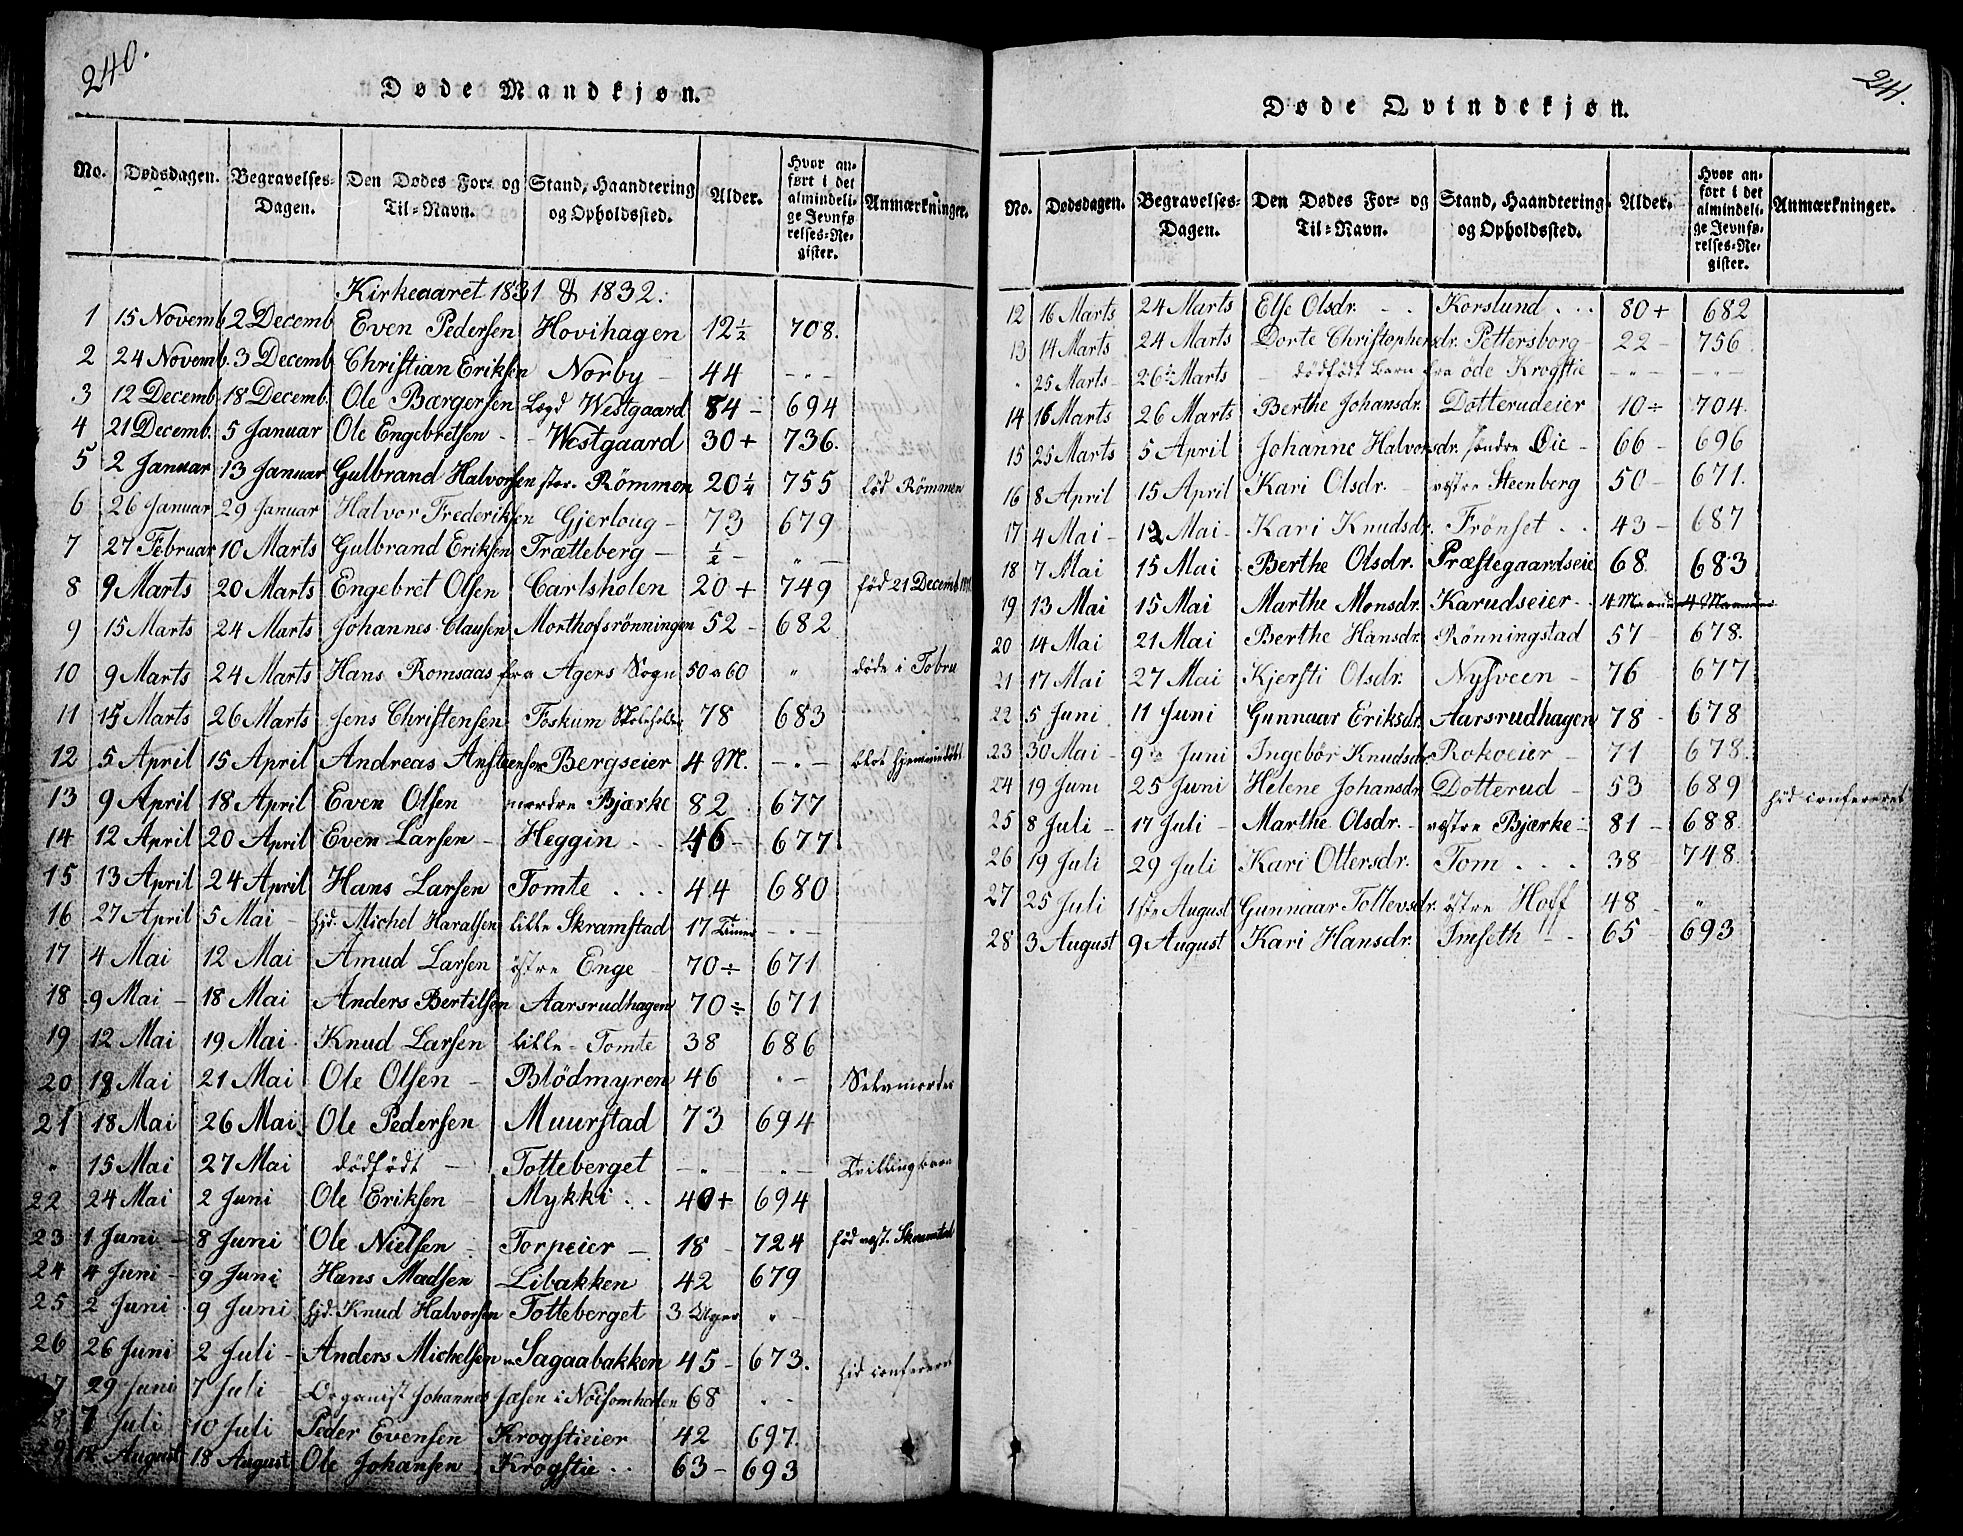 240.
Døde Mandkjøn.
No. Dødsdagen. Begravelses-Dagen. Den Dødes For- og Til-Navn. Stand, Haandtering og Opholdssted. Alder. Hvor anført i det almindelige Jevnførelses-Register. Anmærkninger.
Kirkeaaret 1831 & 1832.
1 15 Novemb. 2 Decemb. Even Pedersen Hovihagen 12 1/2 708.
2 24 Novemb. 3 Decemb. Christian Eriksen Norby – 44 – " –
3 12 Decemb. 18 Decemb. Ole Bærgersen Lægd Westgaard 84 – 694
4 21 Decemb. 5 Januar Ole Engebretsen - - Westgaard 30 + 736.
5 2 Januar 13 Januar Gulbrand Halvorsen stor. Römmen 20 1/4 755 föd Römmen
6 26 Januar 29 Januar Halvor Frederiksen Gjerloug – 73 679
7 27 Februar 10 Marts Gulbrand Eriksen Trætteberg – 1/2 – " –
8 9 Marts 20 Marts Engebret Olsen Carlsholen 20 + 749 föd 21 Decemb.
9 15 Marts 24 Marts Johannes Clausen Morthofsrönningen 52 – 682
10 9 Marts 24 Marts Hans Romsaas fra Agers Sogn 50 a 60 " döde i Tobru
11 15 Marts 26 Marts Jens Christensen Foskum Skoleholder 78 683
12 5 April 15 April Andreas Anstensen Bergseier 4 M. – " – blot hjemmedöbt
13 9 April 18 April Even Olsen nordre Bjærke 82 677
14 12 April 20 April Even Larsen – Heggin . . 46 – 677
15 13 April 24 April Hans Larsen Tomte . . . 44 680
16 27 April 5 Mai – hjd. Michel Haralsen lille Skramstad 17 Timer – " –
17 4 Mai 12 Mai Amud Larsen östre Enge – 70 ÷ 671
18 9 Mai – 18 Mai Anders Bertilsen Aarsrudhagen 70 ÷ 671
19 12 Mai 19 Mai Knud Larsen lille – Tomte 38 686
20 18 Mai 21 Mai Ole Olsen – Blödmyren 46 " – Selvmorder
21 18 Mai 26 Mai Ole Pedersen Muurstad 73 694
" 15 Mai 27 Mai dödfödt – Totteberget – " – " – Tvillingbarn
22 24 Mai 2 Juni Ole Eriksen – Mykki . . 40 + 694
23 1 Juni – 8 Juni Ole Nielsen – Torpeier – 18 – 724 föd vest. Skramstad
24 4 Juni – 9 Juni Hans Madsen Libakken 42 679
25 2 Juni 9 Juni hjd. Knud Halvorsen Totteberget 3 Uger " –
26 26 Juni 2 Juli – Anders Michelsen Sagaabakken 45 – 673. hid confereret
27 29 Juni 7 Juli Organist Johannes Jæsen i Nöisomheden 68 " –
28 7 Juli 10 Juli Peder Evensen Krogstieier 42 697.
29 12 August 18 August Ole Johansen Krogstie . . 63 – 693
241.
Døde Qvindekjøn.
No. Dødsdagen. Begravelses-Dagen. Den Dødes For- og Til-Navn. Stand, Haandtering og Opholdssted. Alder. Hvor anført i det almindelige Jevnførelses-Register. Anmærkninger.
12 16 Marts 24 Marts Else Olsdr. - . Korslund . . . 80 + 682
13 14 Marts 24 Marts Dorte Christophersdr. Pettersborg – 22 – 756.
" 25 Marts – 26 Marts – dödfödt Barn fra öde Krogstie – " – – " –
14 16 Marts 26 Marts Berthe Johansdr. Dotterudeier 10 ÷ 704.
15 25 Marts 5 April Johanne Halvorsdr. söndre Öie – 66 – 696
16 8 April 15 April Kari Olsdr. – vestre Steenberg 50 – 671.
17 4 Mai – 12 Mai – Kari Knudsdr. Frönset . . 43 – 687
18 7 Mai 15 Mai Berthe Olsdr. Præstegaardseie 68. 683
19 13 Mai 15 Mai Marthe Monsdr. Karudseier – 4 Maaneder
20 14 Mai 21 Mai Berthe Hansdr. Rönningstad 57 – 678.
21 17 Mai 27 Mai Kjersti Olsdr. Nysveen – 76 677
22 5 Juni 11 Juni Gunnaar Eriksdr. Aarsrudhagen 78 – 678
23 30 Mai – 9 Juni Ingebör Knudsdr. Rokoeier – 71 678.
24 19 Juni 25 Juni Helene Johansdr. Dotterud – 53 689 hid confereret
25 8 Juli – 17 Juli – Marthe Olsdr. – vestre Bjærke – 81 – 688.
26 19 Juli 29 Juli Kari Ottersdr. Tom . . . 38 – 748.
27 25 Juli 1ste August Gunnaar Tollevsdr. östre Hoff 48 – "
28 3 August 9 August Kari Hansdr. Imseth – - 65 – 693